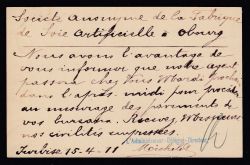 Société Anonyme de la Fabrique
de Soie Artificielle à Obourg
Nous avons l'avantage de
vous informer que notre agent
passera chez vous Mardi prochain
dans l'après midi pour procéder
au mesurage des parements de
vos bureaux. Recevez, Messieurs
nos civilités empressées.
15-4-11
L'Administrateur-Délégué-Directeur,